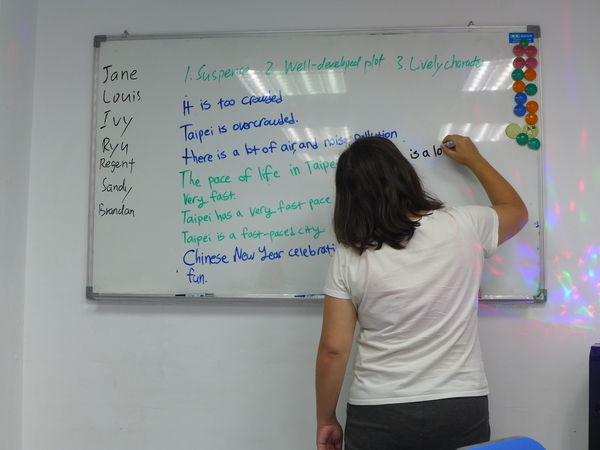 Jane
Louis
Ivy
Ryu
Regent
Sandy
Brandan
1. Suspense 2. Well-developed plot 3. Lively characte
it is too crowded
Taipei is overcrowded.
there is a lot of air, and noise pollution
is a lo
The pace of life in Taipei
very fast.
Taipei has a very fast pace
Taipei is a fast-paced city
Chinese New Year celebrati
fun.